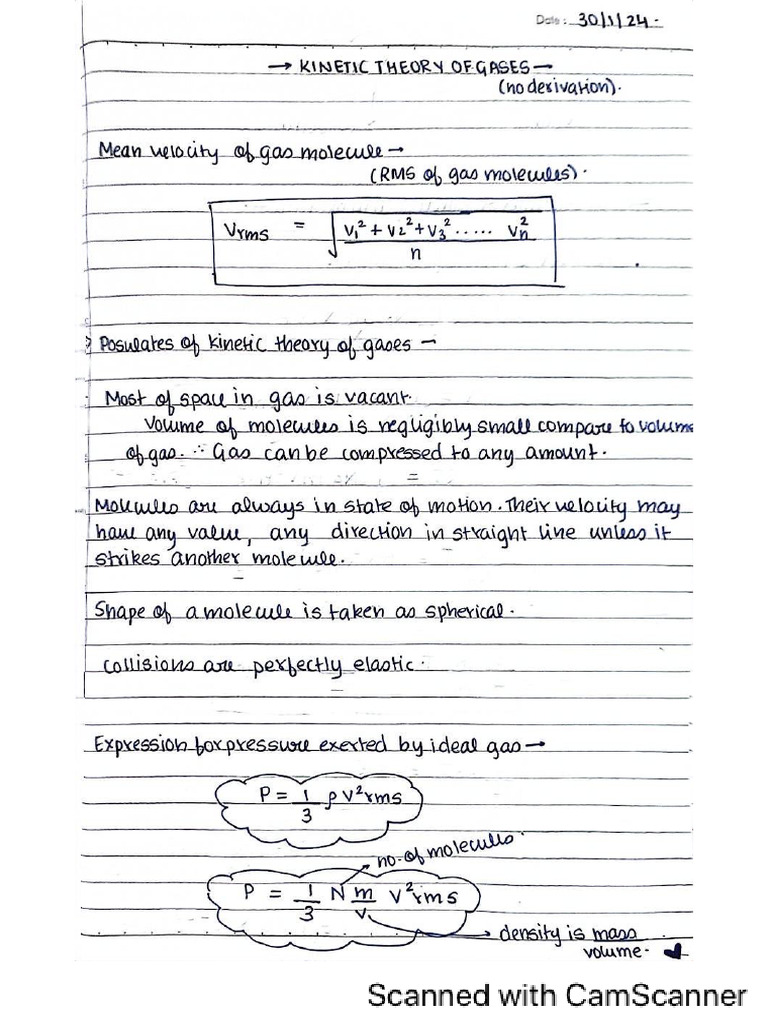 Date: 30/1/24.
→ KINETIC THEORY OF GASES —
(no derivation).
Mean velocity of gas molecule →
(RMS of gas molecules).
Vrms = √(v₁² + v₂² + v₃² ..... vn² / n)
Posulates of kinetic theory of gases —
Most of space in gas is vacant.
Volume of molecules is negligibly small compare to volume
of gas. ∴ Gas can be compressed to any amount.
Molecules are always in state of motion. Their velocity may
have any value, any direction in straight line unless it
strikes another molecule.
Shape of a molecule is taken as spherical.
Collisions are perfectly elastic.
Expression for pressure exerted by ideal gas →
P = 1/3 ρ v²rms
no. of molecules.
P = 1/3 N m/v v²rms
density is mass
volume.
Scanned with CamScanner